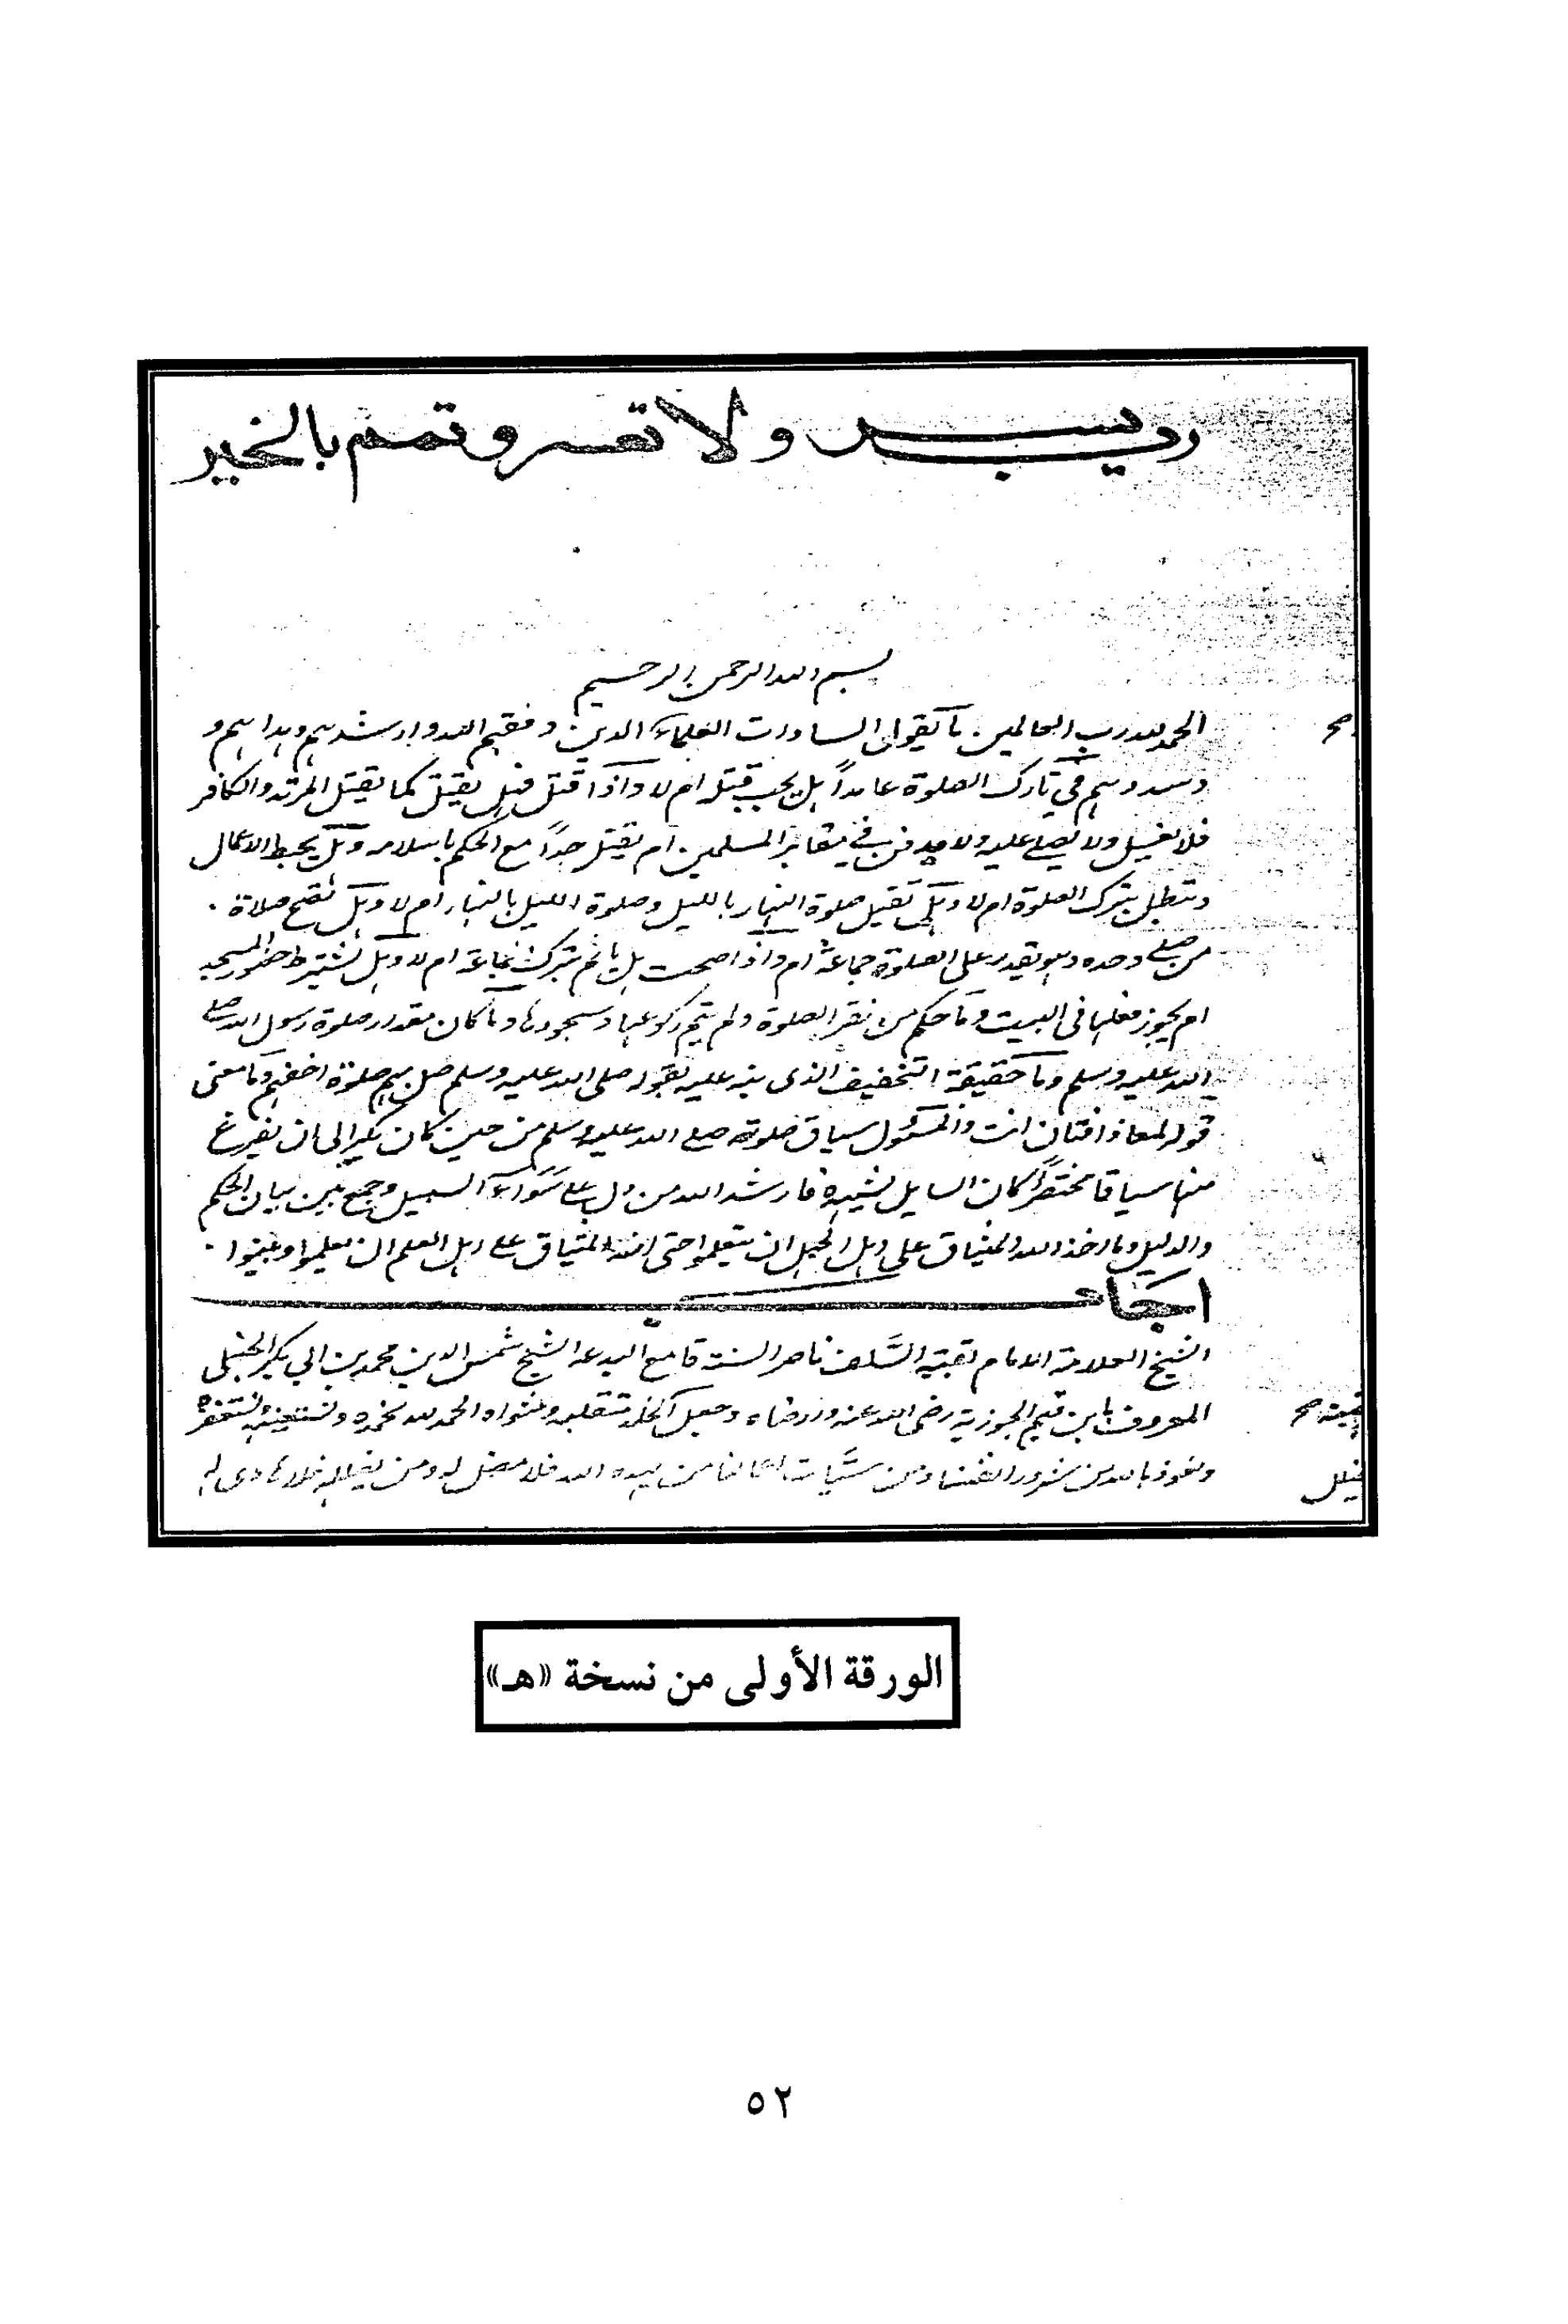 رب يسر ولا تعسر وتمم بالخير
بسم الله الرحمن الرحيم
الحمد لله رب العالمين. ما يقول السادات العلماء الدين وفقهم الله وارشدهم وهداهم و
وسددهم في تارك الصلوة عامداً هل يجب قتله ام لا واذا قتل فهل يقتل كما يقتل المرتد والكافر
فلا يغسل ولا يصلى عليه ولا يدفن في مقابر المسلمين. ام يقتل حداً مع الحكم باسلامه وهل يحبط الاعمال
وتبطل بترك الصلوة ام لا وهل تقبل صلوة النهار بالليل وصلوة الليل بالنهار ام لا وهل تصح صلاة .
من صلى وحده وهو يقدر على الصلوة جماعة ام واذا صحت هل ياثم بترك الجماعة ام لا وهل يشترط حضور المسجد
ام يجوز فعلها فى البيت وما حكم من نقر الصلوة ولم يتم ركوعها وسجودها وما كان مقدار صلوة رسول الله صلى
الله عليه وسلم وما حقيقة التخفيف الذى نبه عليه بقوله صلى الله عليه وسلم صل بهم صلوة اخفهم وما معنى
قوله لمعاذ افتان انت والمسئول سياق صلوته صلى الله عليه وسلم من حين كان يكبر الى ان يفرغ
منها سياقا مختصراً كان السايل يشهده فارشد الله من دل على سواء السبيل وجمع بين بيان الحكم
والدليل وما اخذ الله الميثاق على اهل الجهل ان يتعلموا حتى اخذ الميثاق على اهل العلم ان يعلموا ويبينوا .
اجاب
الشيخ العلامة الامام بقية السلف ناصر السنة قامع البدعة الشيخ شمس الدين محمد بن ابي بكر الحنبلي
المعروف بابن قيم الجوزية رضى الله عنه وارضاه وجعل الجنة متقلبه ومثواه الحمد لله نحمده ونستعينه ونستغفره
ونعوذ بالله من شرور انفسنا ومن سيئات اعمالنا من يهده الله فلا مضل له ومن يضلله فلا هادى له
الورقة الأولى من نسخة «هـ»
٥٢